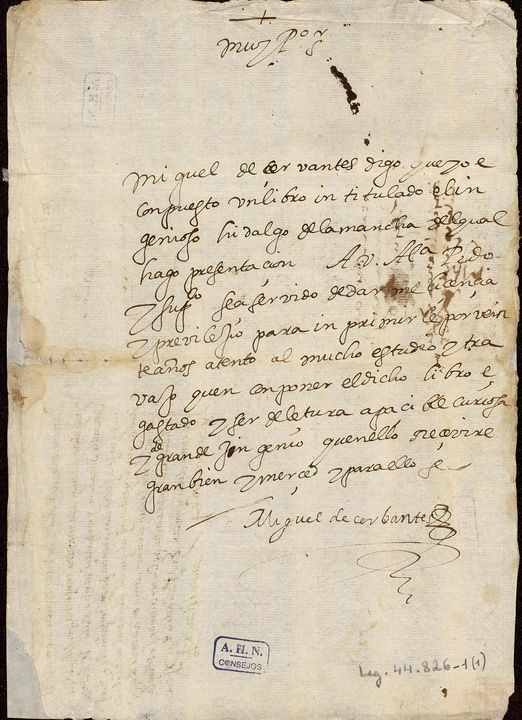 +
muy Pos r
Miguel de cervantes digo que yo e
conpuesto un libro intitulado el in
genioso hidalgo de la mancha del qual
hago presentaçion A V. Alª Pido
y suplº sea servido de darme licençia
y previlejio para inprimirle por vein
te años atento al mucho estudio y tra
vajo que en conponer el dicho libro e
gastado y ser de letura apacible curiosa
y de grande ingenio que nello reçevire
gran bien y merced y para ello &ª
Miguel de cerbantes
A. H. N.
CONSEJOS
Leg. 44.826-1(1)
A.H.N.